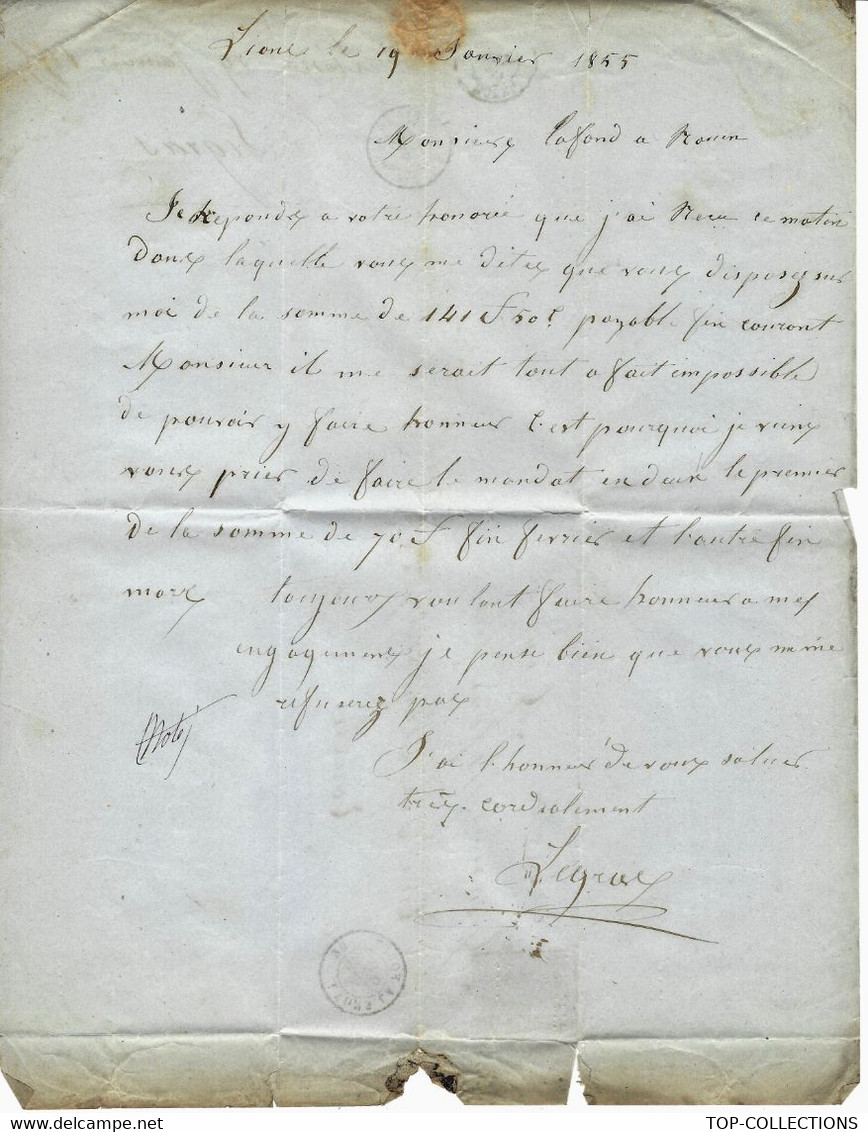 le 19 Janvier 1855
Monsieur Lafond a Rouen
Je Reponds a votre honoré que j'ai Recu ce matin
dans laquelle vous me dites que vous disposez sur
moi de la somme de 141 f 50 c. payable fin courant
Monsieur il me serait tout a fait impossible
de pouvoir y faire honneur c'est pourquoi je viens
vous prier de faire le mandat en deux le premier
de la somme de 70 f fin fevrier et l'autre fin
mars toujours voulant faire honneur a mes
engagements je pense bien que vous ne me
refuserez pas
J'ai l'honneur de vous saluer
très cordialement
Legras
TOP-COLLECTIONS